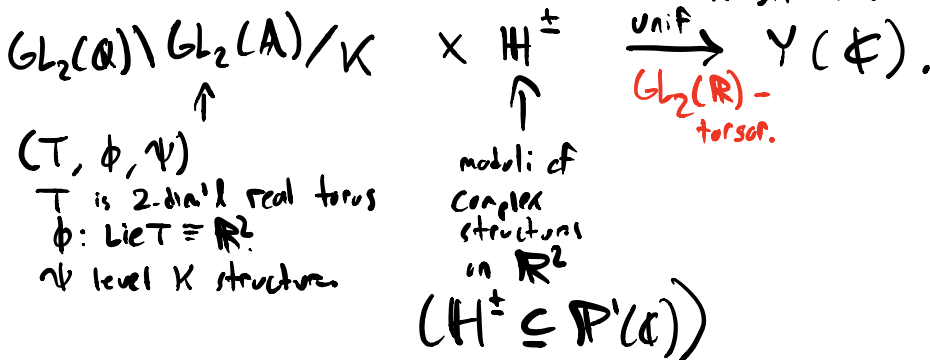 GL₂(ℚ)\GL₂(𝔸)/K × ℍ^± unif→ Y(ℂ).
GL₂(ℝ)-
torsor.
↑ ↑
(T, φ, ψ)
T is 2-dim'l real torus
φ: Lie T ≅ ℝ².
ψ level K structure.
moduli of
complex
structures
on ℝ²
(ℍ^± ⊆ ℙ¹(ℂ))